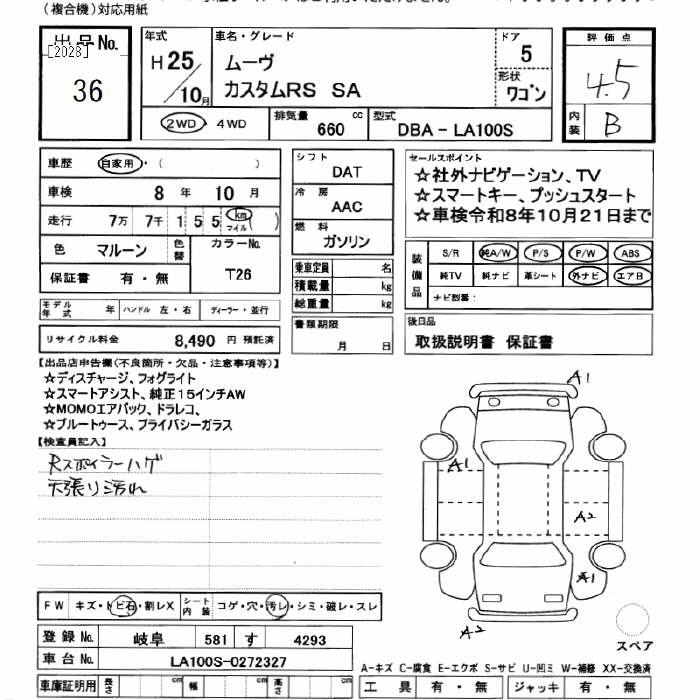 （複合機）対応用紙
出品No. 年式 車名・グレード ドア 評価点
[2028] H 25 ムーヴ 5
36 10月 カスタムRS SA 形状 ワゴン 4.5
2WD ・ 4WD 排気量 660 cc 型式 DBA - LA100S 内装 B
車歴 自家用・（ ） シフト DAT セールスポイント
☆社外ナビゲーション、TV
車検 8 年 10 月 冷房 AAC ☆スマートキー、プッシュスタート
走行 7万 7千 1 5 5 km マイル ( ) ☆車検令和8年10月21日まで
色 マルーン 色替 カラーNo. 燃料 ガソリン
装備品 S/R 純A/W P/S P/W ABS
保証書 有・無 T26 乗車定員 名 純TV 純ナビ 革シート 外ナビ エアB
積載量 kg ナビ型番：
モデル年式 年 ハンドル 左・右 ディーラー・並行 総重量 kg
リサイクル料金 8,490 円 預託済 書類期限 月 日 後日品
取扱説明書 保証書
【出品店申告欄(不良箇所・欠品・注意事項等)】
☆ディスチャージ、フォグライト
☆スマートアシスト、純正15インチAW
☆MOMOエアバック、ドラレコ、
☆ブルートゥース、プライバシーガラス
【検査員記入】
Rスポイラーハゲ
天張り汚れ
A1
A1
A2
A1
A2
スペア
FW キズ・トビ石・割レX シート内装 コゲ・穴・汚レ・シミ・破レ・スレ
登録No. 岐阜 581 す 4293
車台No. LA100S-0272327
A-キズ C-腐食 E-エクボ S-サビ U-凹ミ W-補修 XX-交換済
車庫証明用 長さ cm 幅 cm 高さ cm 工具 有・無 ジャッキ 有・無